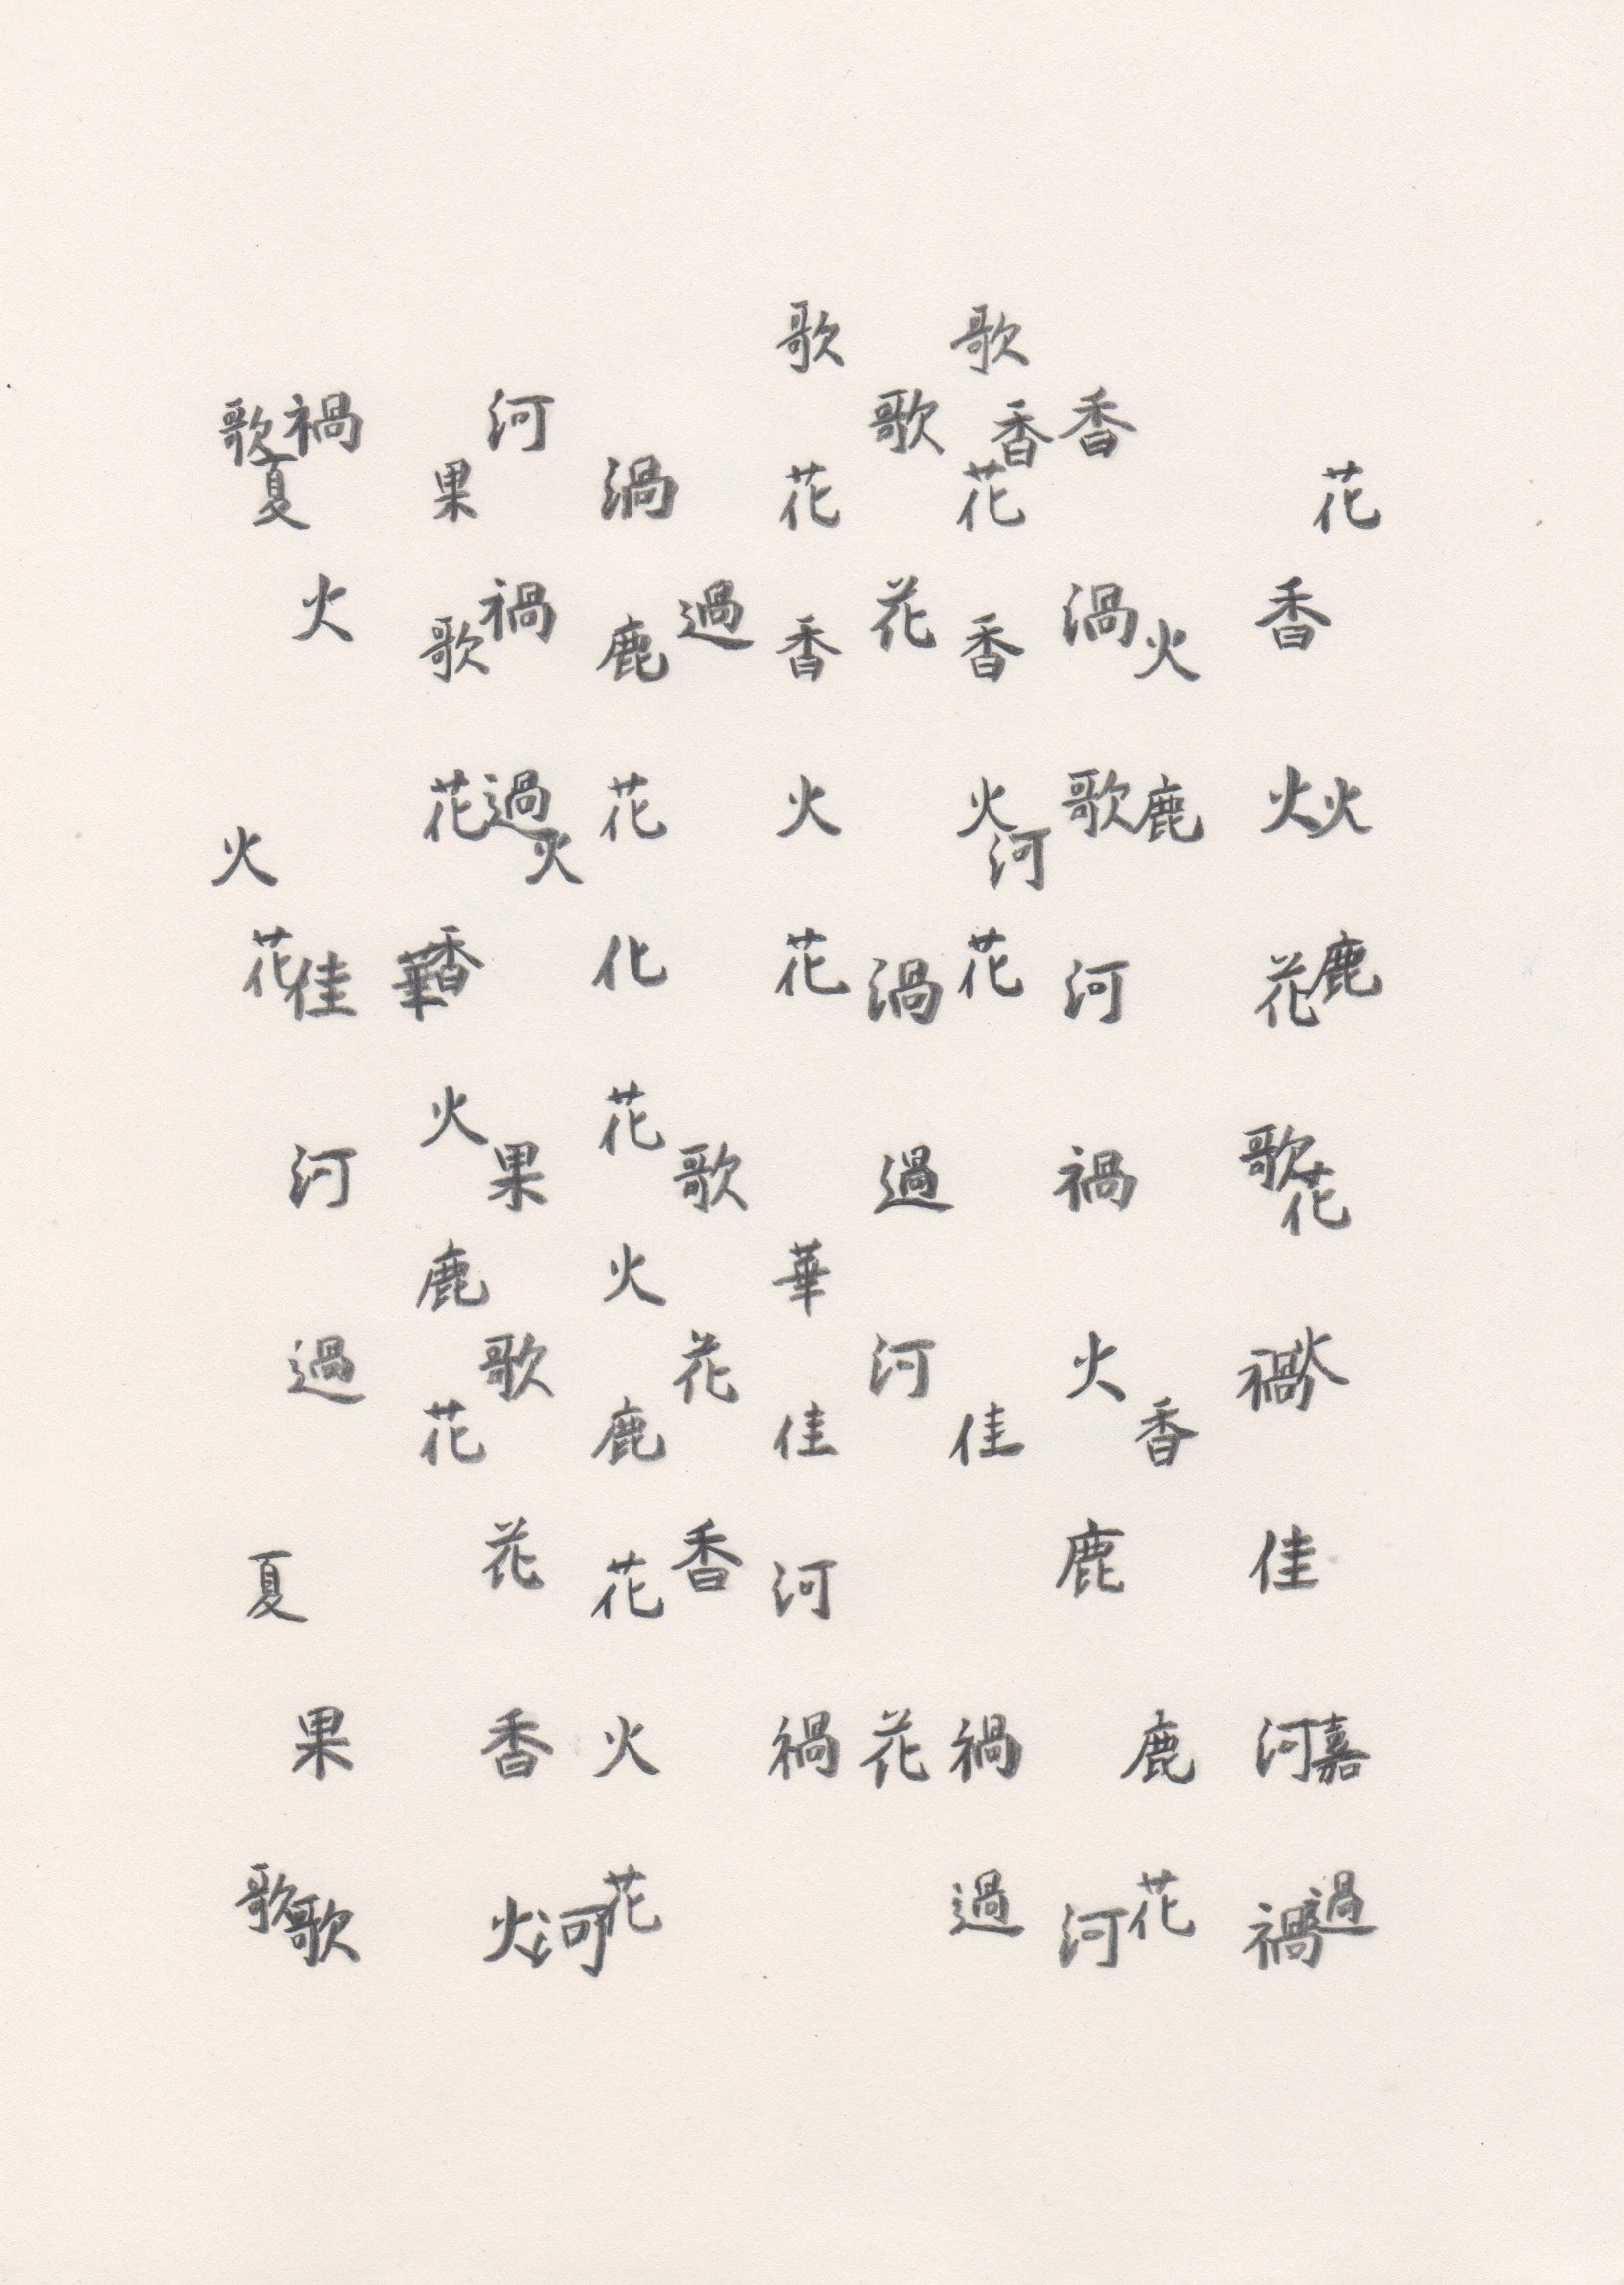 歌 歌
歌 禍 河 歌 香 香
夏 果 渦 花 花 花
火 禍 過 花 渦 香
歌 鹿 香 香 火
花 過 花 火 火 歌 鹿 火 火
火 火 河
花 香 化 花 花 鹿
佳 華 渦 河 花
火 花
河 果 歌 過 禍 歌 花
鹿 火 華
過 歌 花 河 火 禍 火
花 鹿 佳 佳 香
花 香 鹿 佳
夏 花 河
果 香 火 禍 花 禍 鹿 河 嘉
歌 花 過 花 過
歌 火 河 河 禍